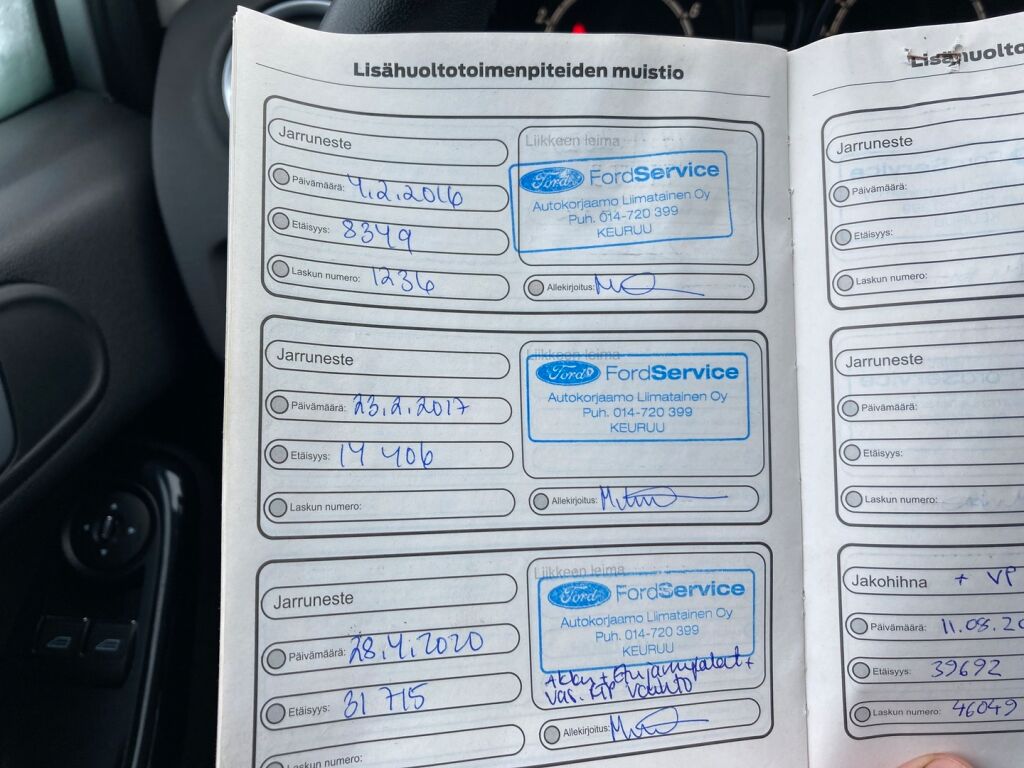 Lisähuoltotoimenpiteiden muistio
Jarruneste
Päivämäärä: 4.2.2016
Etäisyys: 8349
Laskun numero: 1236
Liikkeen leima
Ford FordService
Autokorjaamo Liimatainen Oy
Puh. 014-720 399
KEURUU
Allekirjoitus:
Jarruneste
Päivämäärä: 23.2.2017
Etäisyys: 14 406
Laskun numero:
Liikkeen leima
Ford FordService
Autokorjaamo Liimatainen Oy
Puh. 014-720 399
KEURUU
Allekirjoitus:
Jarruneste
Päivämäärä: 28.4.2020
Etäisyys: 31 715
Laskun numero:
Liikkeen leima
Ford FordService
Autokorjaamo Liimatainen Oy
Puh. 014-720 399
KEURUU
Akku + Etujarrupalat +
vas. vaihto
Allekirjoitus:
Lisähuolto
Jarruneste
Päivämäärä:
Etäisyys:
Laskun numero:
Jarruneste
Päivämäärä:
Etäisyys:
Laskun numero:
Jakohihna + VP
Päivämäärä: 11.08.20
Etäisyys: 39692
Laskun numero: 46049
2
6